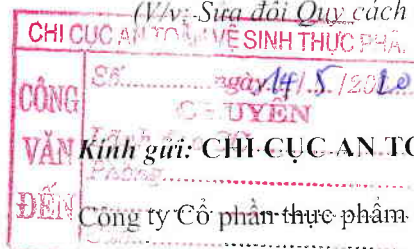 (V/v: Sửa đổi Quy cách
CHI CỤC AN TOÀN VỆ SINH THỰC PHẨ
CÔNG VĂN ĐẾN
Số ngày 14/5/2020
CHUYỂN
Kính gửi: CHI CỤC AN TO
Phòng
Công ty Cổ phần thực phẩm